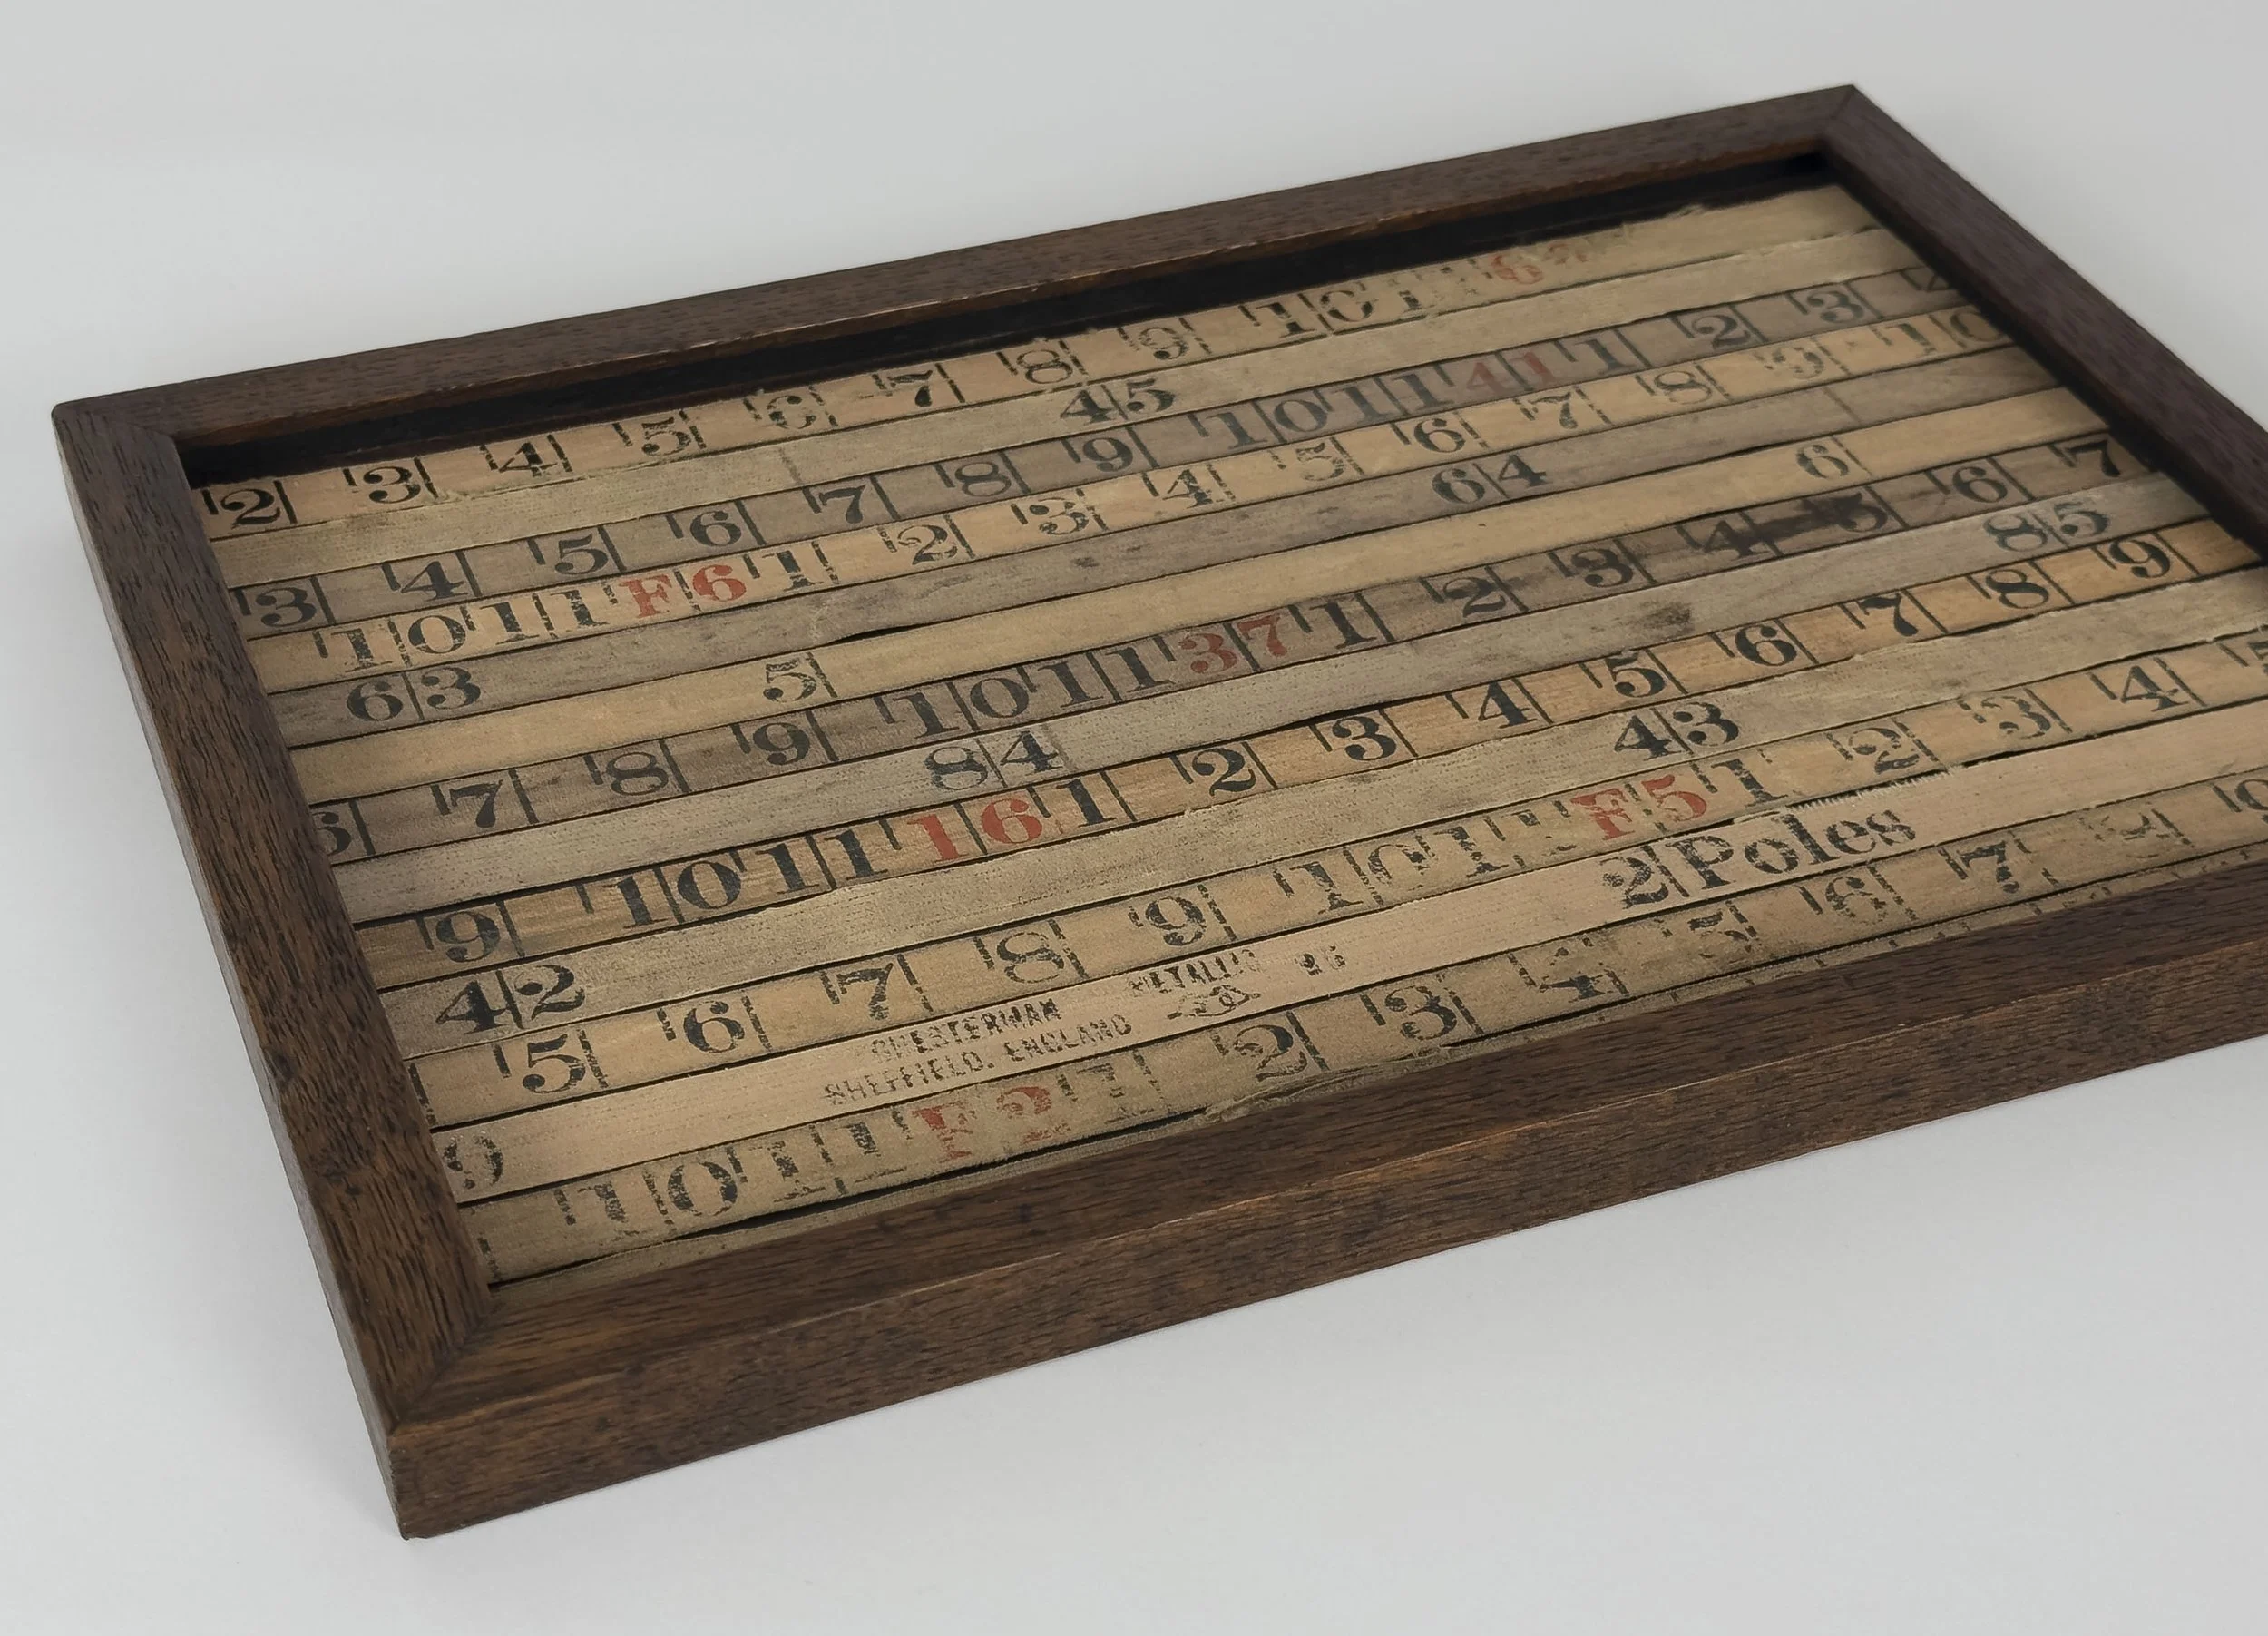 2 3 4 5 6 7 8 9 10 1 6
45
3 4 5 6 7 8 9 10 11 41 1 2 3 4
10 11 F 6 1 2 3 4 5 6 7 8 9 10
63 64
5 6
6 7 8 9 10 11 37 1 2 3 4 5 6 7
84 85
9 10 11 16 1 2 3 4 5 6 7 8 9
42 43
5 6 7 8 9 10 11 F 5 1 2 3 4 5
CHESTERMAN METALLIC
SHEFFIELD. ENGLAND
2 Poles
9
10 11 F 2 1 2 3 4 5 6 7 8 9